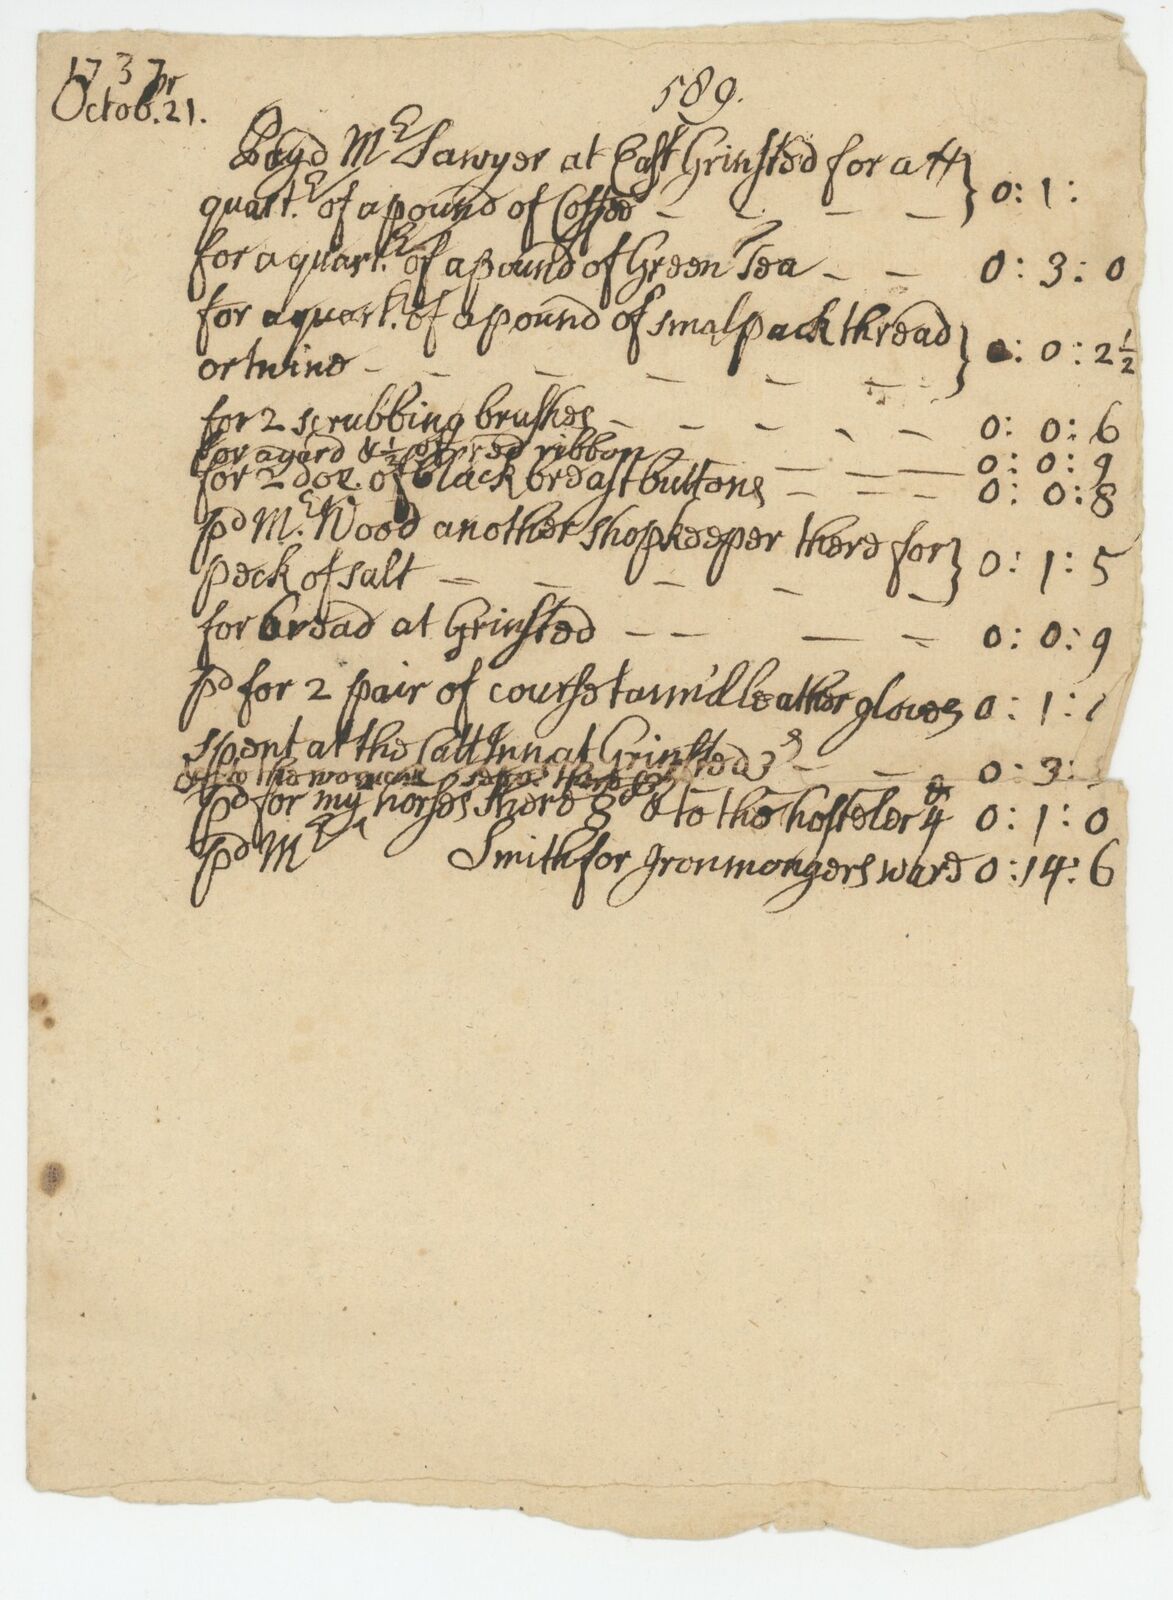 1737
Octob.ʳ 21.
589.
Payd Mʳ Sawyer at East Grinsted for a
quartʳ of a pound of Coffee - - - - } 0 : 1 :
for a quartʳ of a pound of Green Tea - - 0 : 3 : 0
for a quartʳ of a pound of smal pack thread
or twine - - - - - - } 0 : 0 : 2½
for 2 scrubbing brushes - - - - - 0 : 0 : 6
for a yard & ½ of red ribbon - - - 0 : 0 : 9
for 2 doz. of black breast buttons - - - 0 : 0 : 8
pᵈ Mʳ Wood another shopkeeper there for
peck of salt - - - - - } 0 : 1 : 5
for bread at Grinsted - - - - 0 : 0 : 9
pᵈ for 2 pair of course tann'd leather gloves 0 : 1 :
spent at the Catt Inn at Grinsted 3ˢ - - 0 : 3 :
to the woman
pᵈ for my horses there 8ᵈ & to the hosteler 4ᵈ 0 : 1 : 0
pᵈ Mʳ Smith for Ironmongers ware 0 : 14 : 6